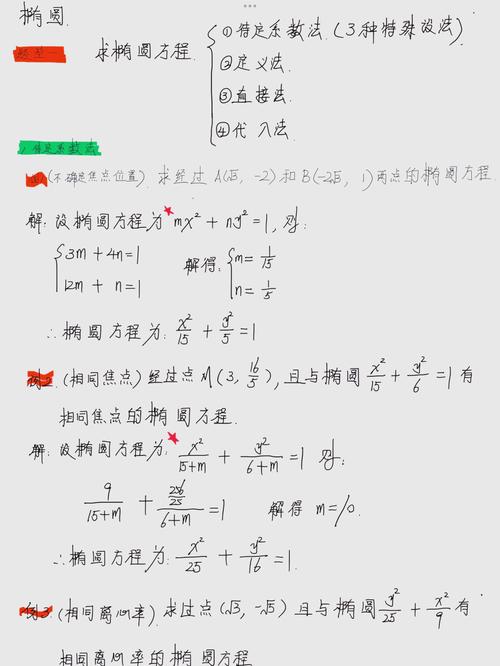 椭圆.
题型一 求椭圆方程
①待定系数法.(3种特殊设法)
②定义法.
③直接法.
④代入法.
1.待定系数法
例1.(不确定焦点位置).求经过A(√3, -2)和B(-2√3, 1)两点的椭圆方程.
解:设椭圆方程为 mx²+ny²=1,则:
{3m+4n=1 解得:{m=1/15
12m+n=1 n=1/5
∴椭圆方程为: x²/15 + y²/5 =1
例2.(相同焦点)经过点M(3, 16/5),且与椭圆 x²/15 + y²/6 =1有
相同焦点的椭圆方程.
解:设椭圆方程为: x²/(15+m) + y²/(6+m) =1 则:
9/(15+m) + (256/25)/(6+m) =1 解得 m=10.
∴椭圆方程为: x²/25 + y²/16 =1.
例3.(相同离心率)求过点(√3, -√5)且与椭圆 y²/25 + x²/9 有
相同离心率的椭圆方程